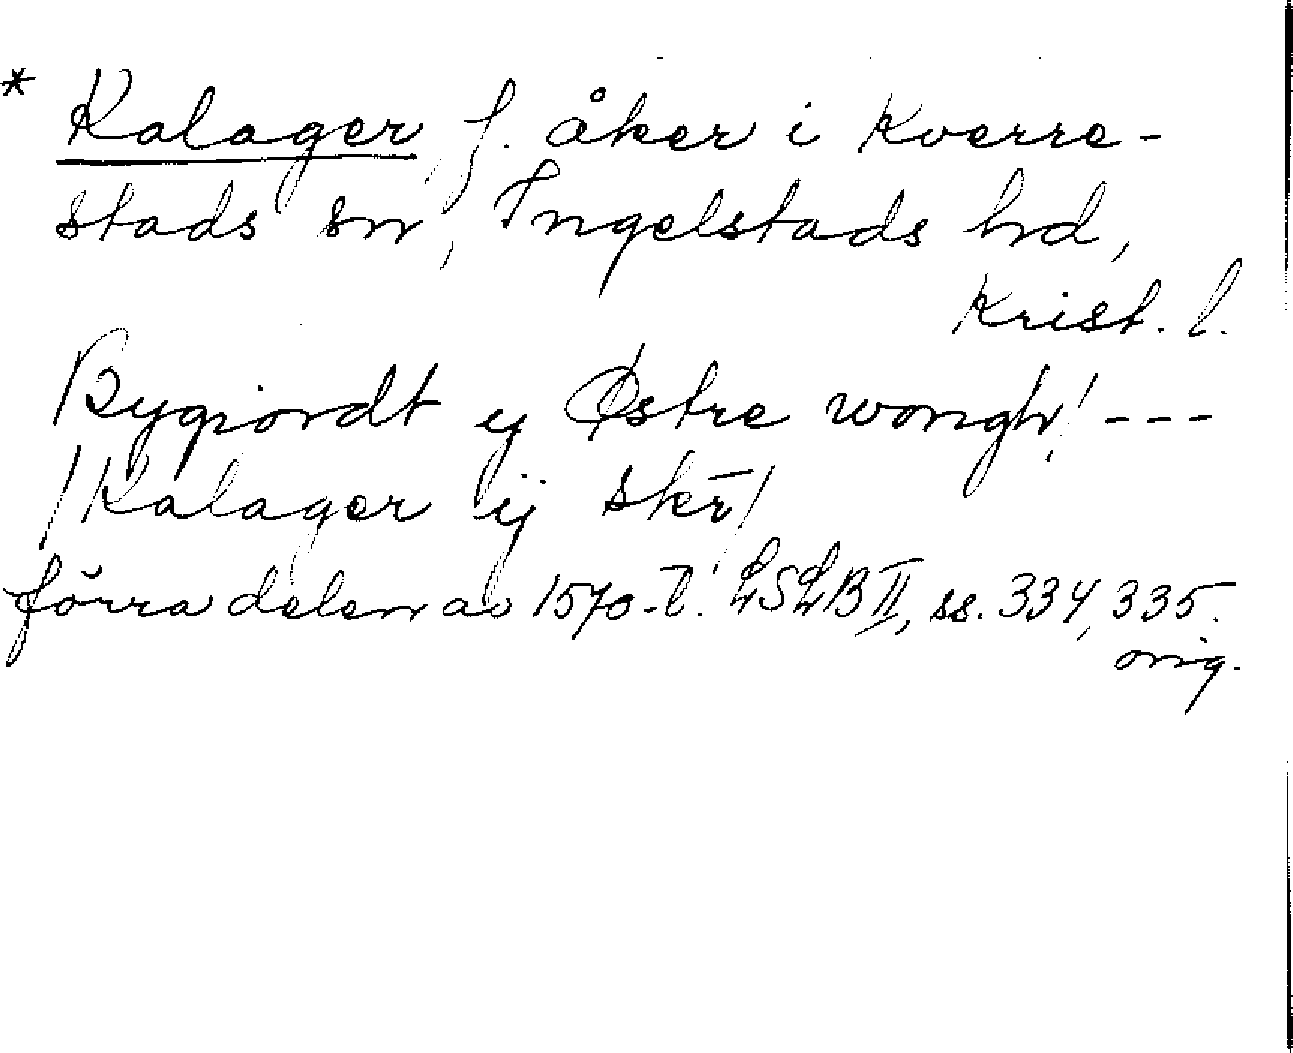 * Kalager, f. åker i Kverre-
stads sn, Ingelstads hd,
Krist. l.
Bygiordt ij Østre wongh! ---
/Kalager ij skr̄/
förra delen av 1570-t. LSLB II, ss. 334, 335.
orig.